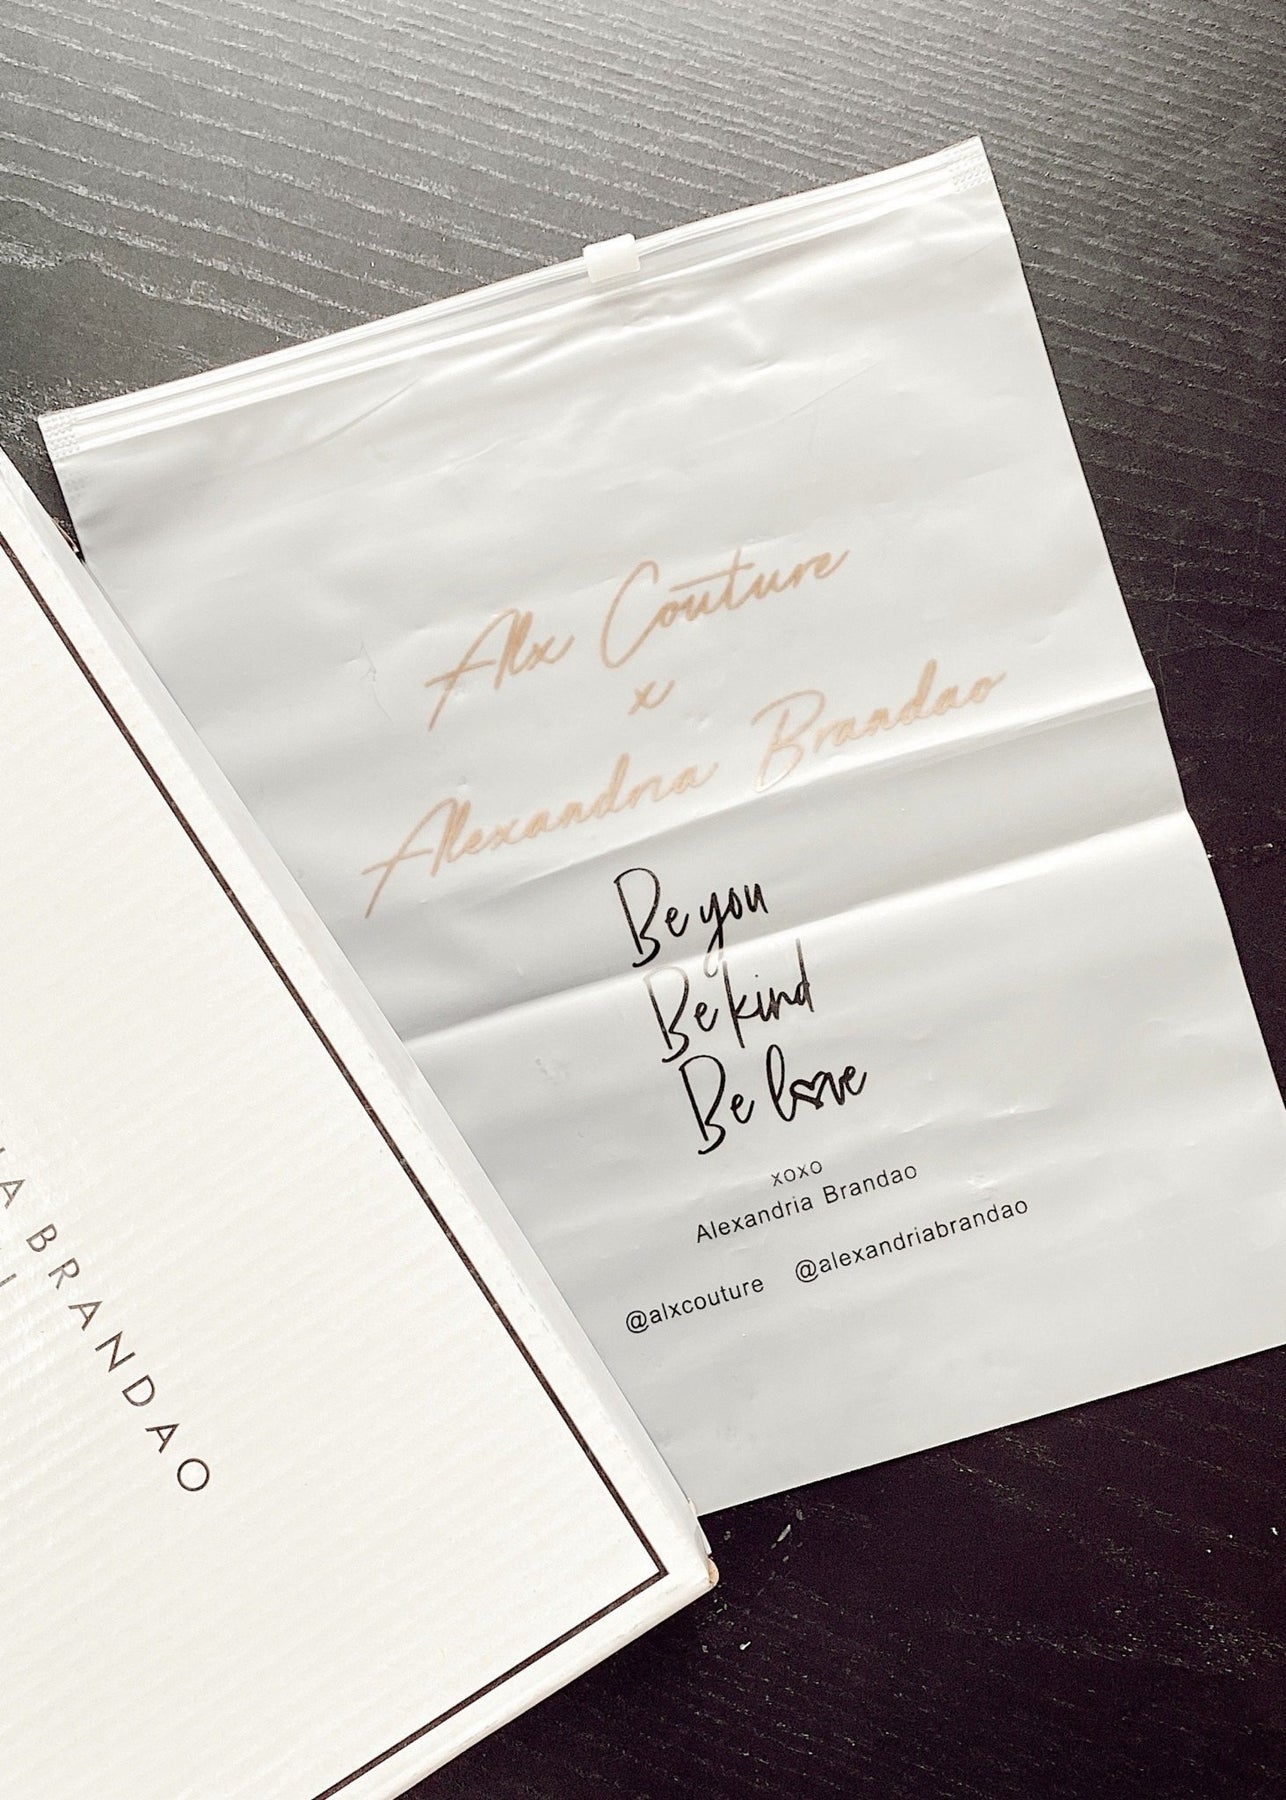 Alx Couture
x
Alexandria Brandao
Be you
Be kind
Be love
xoxo
Alexandria Brandao
@alxcouture @alexandriabrandao
BRANDAO